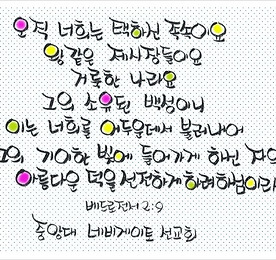 오직 너희는 택하신 족속이요
왕같은 제사장들이요
거룩한 나라요
그의 소유된 백성이니
이는 너희를 어두운데서 불러내어
그의 기이한 빛에 들어가게 하신 자의
아름다운 덕을 선전하게 하려하심이라
베드로전서 2:9
중앙대 네비게이토 선교회